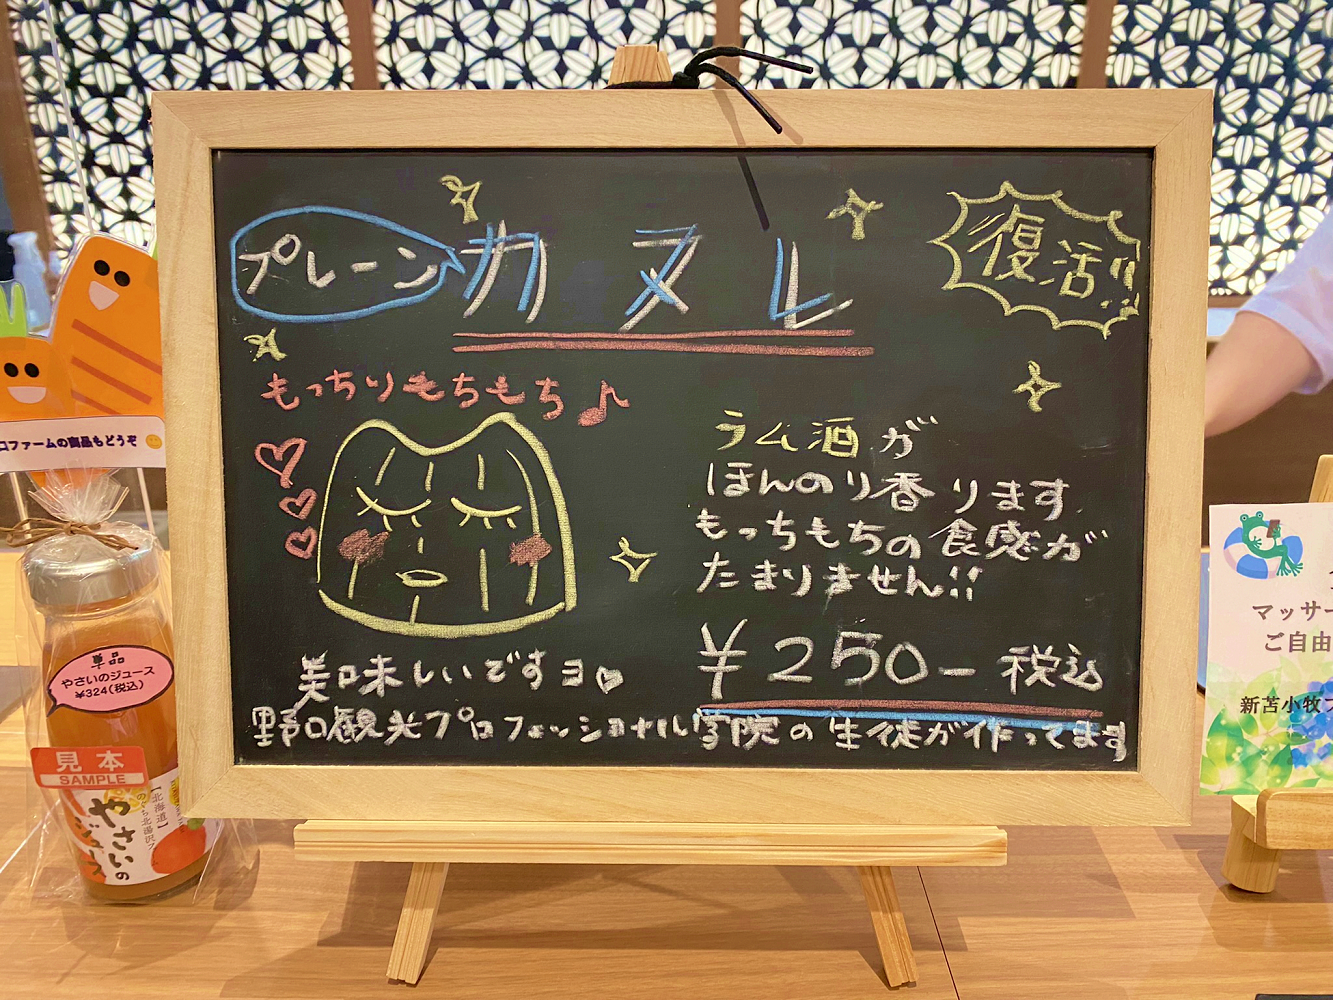 プレーン
カヌレ
復活!!
もっちりもちもち♪
ラム酒が
ほんのり香ります
もっちもちの食感が
たまりません!!
¥250-税込
美味しいですヨ♡
野口観光プロフェッショナル学院の生徒が作ってます
口ファームの商品もどうぞ
単品
やさいのジュース
¥324(税込)
見本
SAMPLE
【北海道】
やさいの
ジュース
マッサー
ご自由
新苫小牧プ